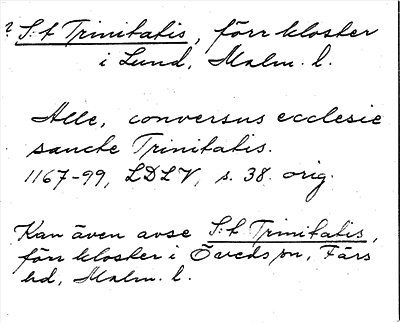 ? S:t Trinitatis, förr kloster
i Lund, Malm. l.
Alle, conversus ecclesie
sancte Trinitatis.
1167-99, LDLV, s. 38. orig.
Kan även avse S:t Trinitatis,
förr kloster i Öveds sn, Färs
hd, Malm. l.